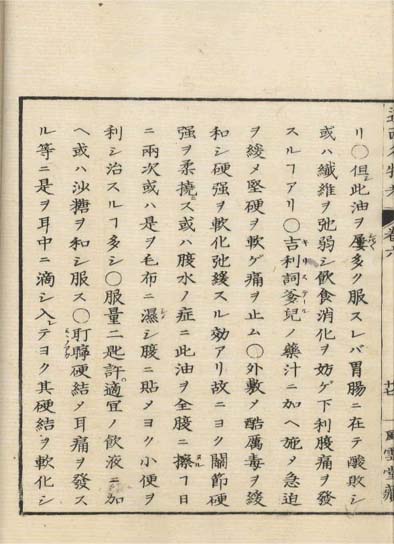 リ〇但此油ヲ屢多ク服スレバ胃腸ニ在テ酸敗シ
或ハ纖維ヲ弛弱シ飲食消化ヲ妨ゲ下利腹痛ヲ發
スルヿアリ〇吉利詞爹兒ノ藥汁ニ加ヘ施メ急迫
ヲ緩メ堅硬ヲ軟ゲ痛ヲ止ム〇外敷メ酷厲毒ヲ緩
和シ硬强ヲ軟化弛緩スル効アリ故ニヨク關節硬
强ヲ柔撓ス或ハ腹水ノ症ニ此油ヲ全腹ニ擦ヿ日
ニ兩次或ハ是ヲ毛布ニ濕シ腹ニ貼メヨク小便ヲ
利シ治スルヿ多シ〇服量二匙許適宜ノ飲液ニ加
ヘ或ハ沙糖ヲ和シ服ス〇耵聹硬結メ耳痛ヲ發ス
ル等ニ是ヲ耳中ニ滴シ入テヨク其硬結ヲ軟化シ
卷六
風雲堂藏